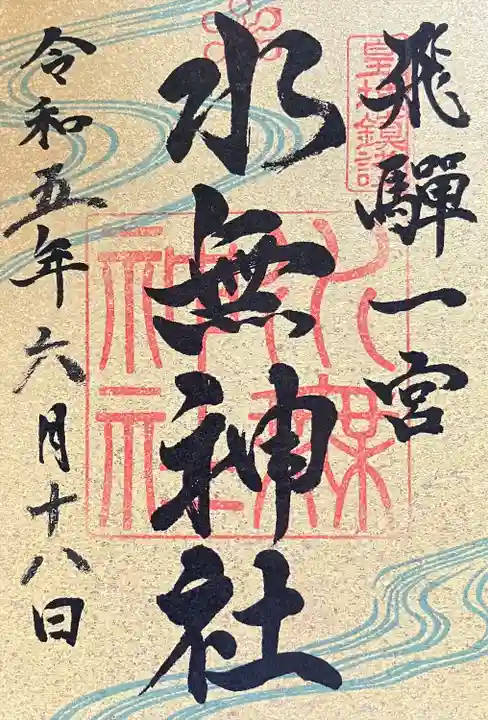 飛騨一宮
皇城鎮護
水無神社
令和五年六月十八日